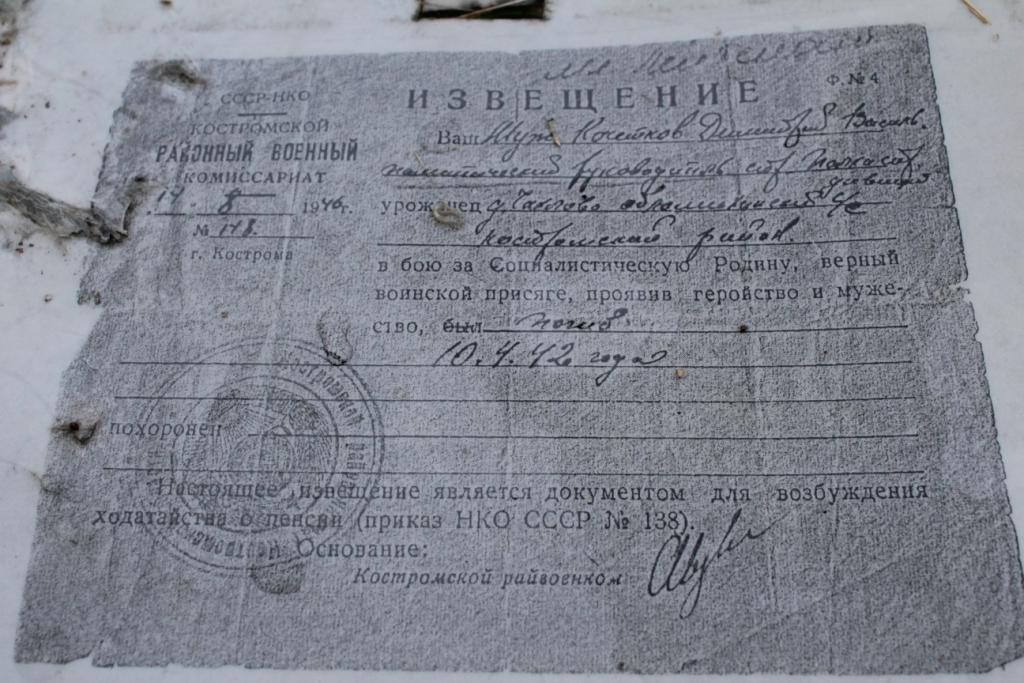 Ф. № 4
СССР-НКО
ИЗВЕЩЕНИЕ
КОСТРОМСКОЙ
РАЙОННЫЙ ВОЕННЫЙ
КОМИССАРИАТ
8 1946 г.
№
г. Кострома
Ваш Муж Кочетков Дмитрий Василь.
политический руководитель
уроженец д.
костромский район.
в бою за Социалистическую Родину, верный
воинской присяге, проявив геройство и муже-
ство, был погиб
10.4.42 года
похоронен
Настоящее извещение является документом для возбуждения
ходатайства о пенсии (приказ НКО СССР № 138).
Основание:
Костромской райвоенком